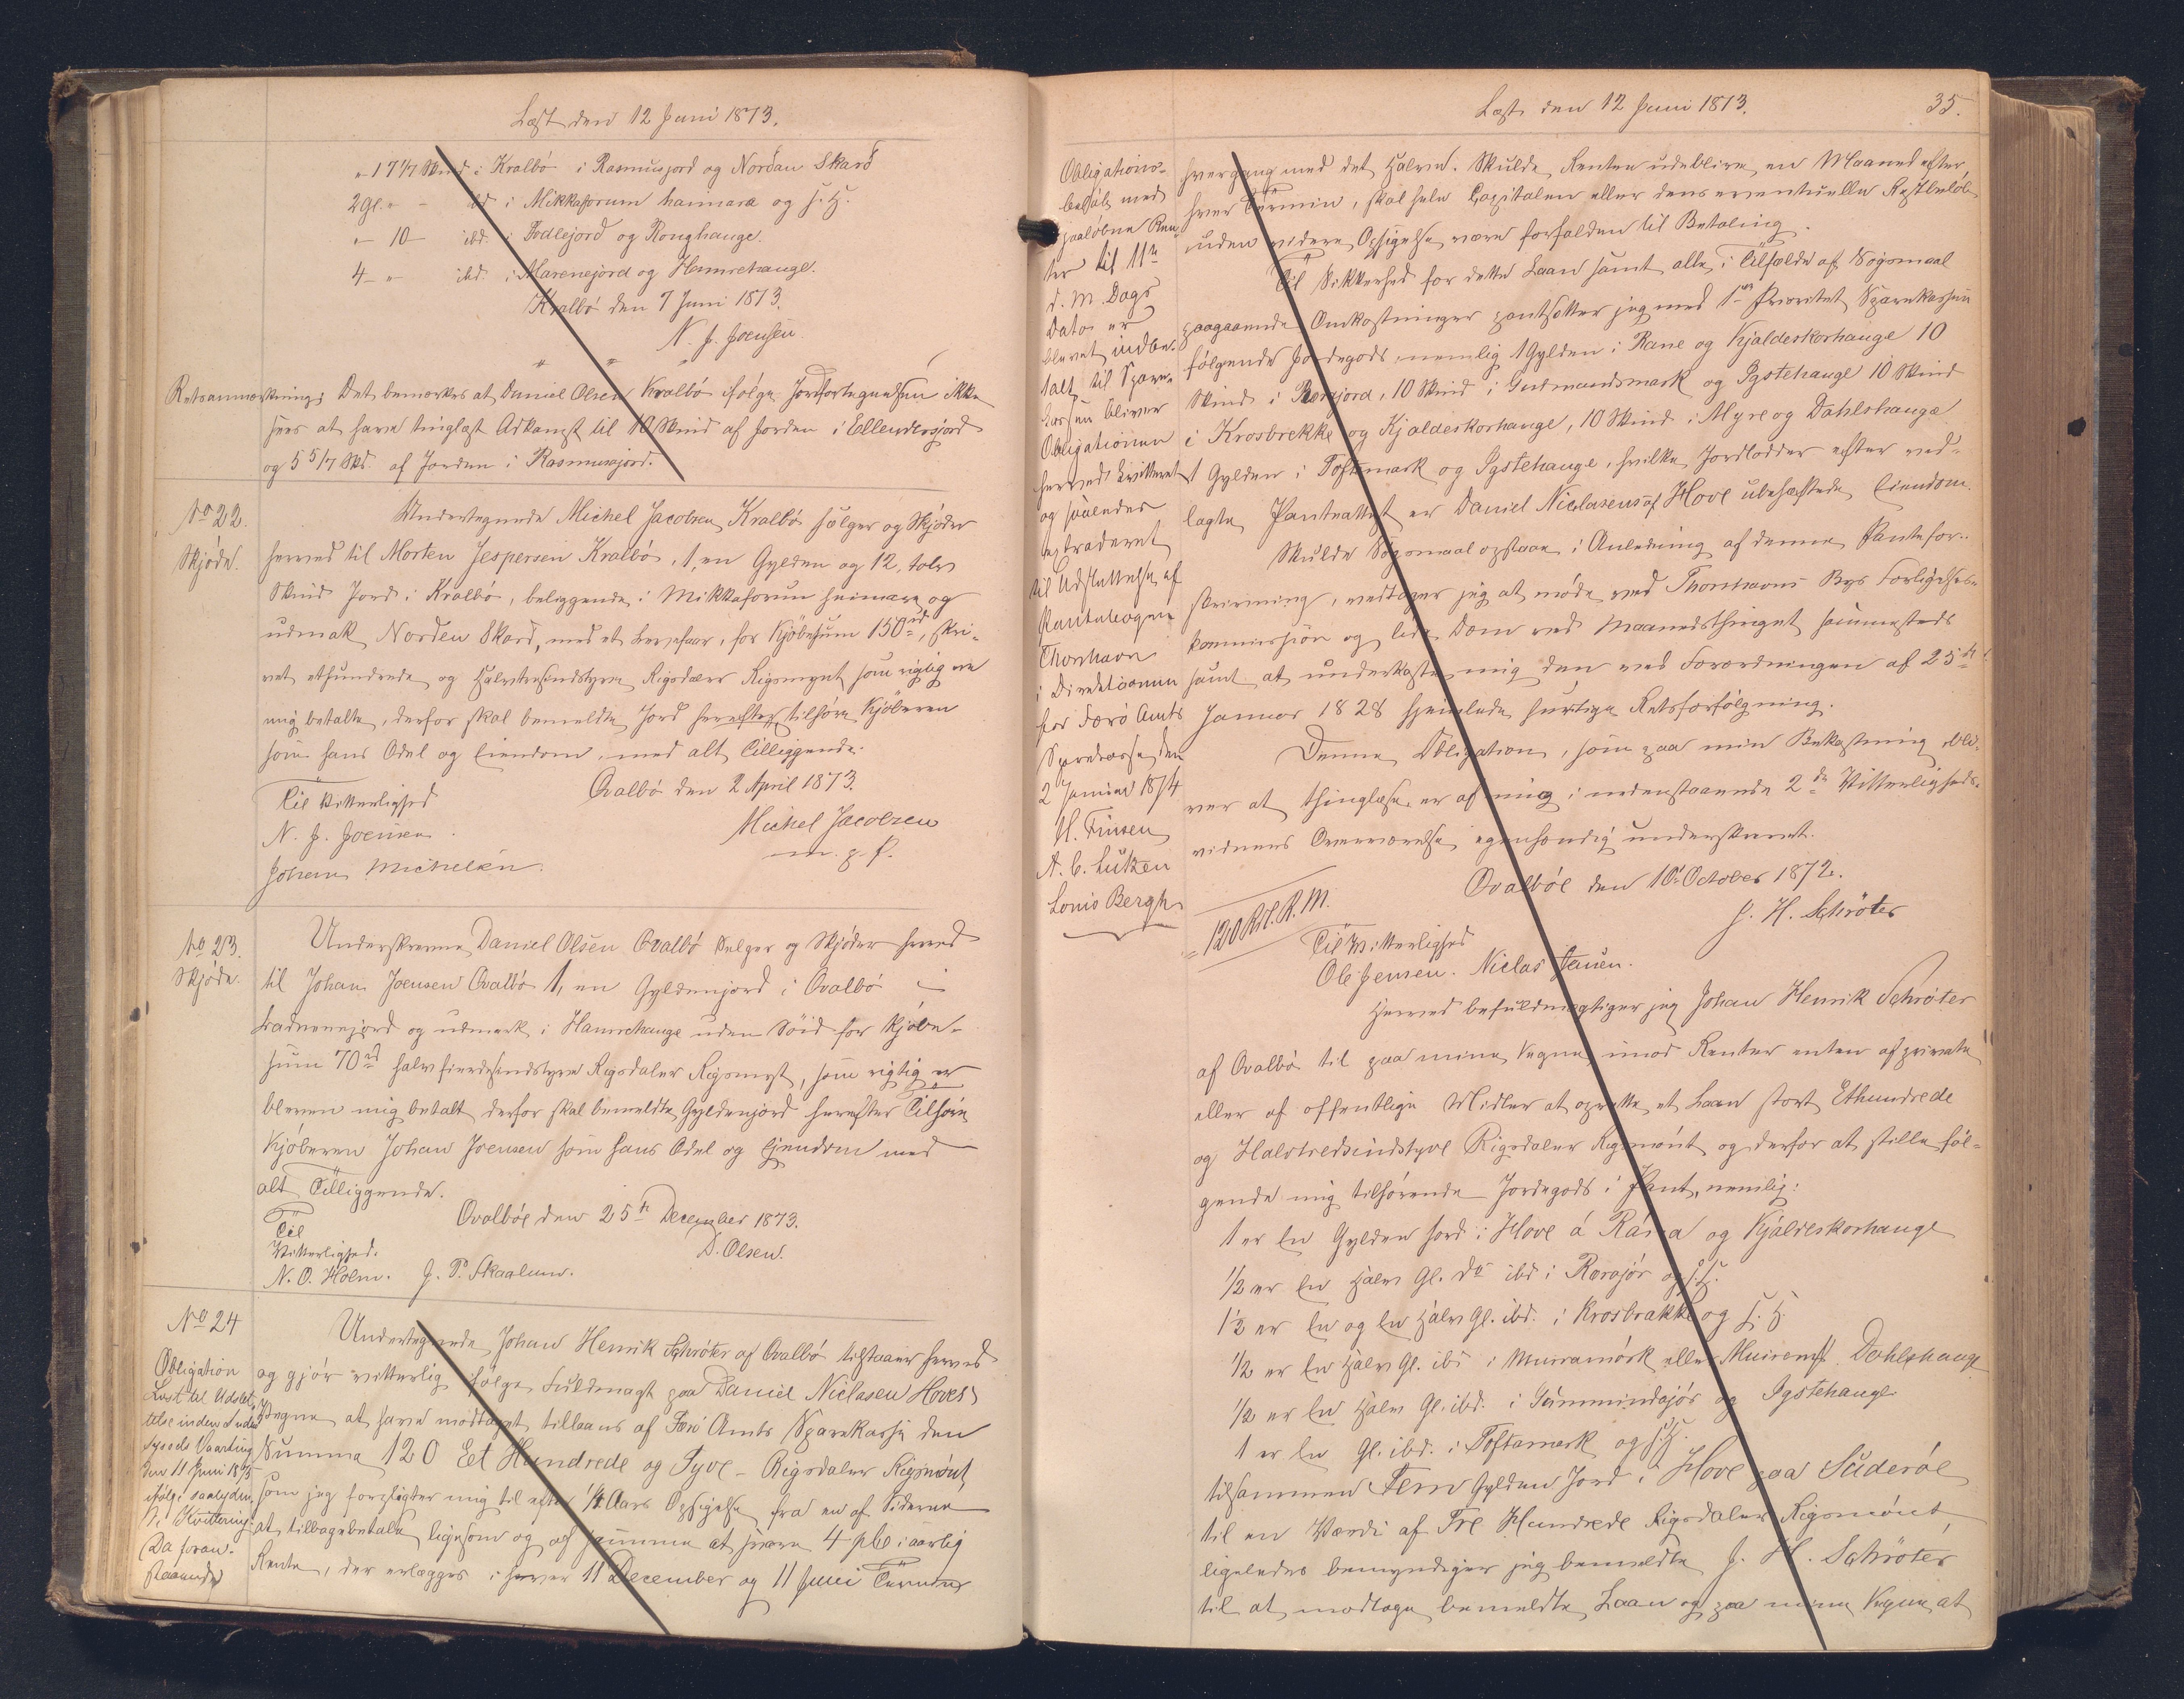 Læst den 12 Juni 1873.
"- 17 1/7 Skind i Kvalbö i Rasmusjord og Nordan Skard
2 Gl. " - ibd. i Mikkaforum hamara og s. H.
"- 10 - ibd. i Jodlejord og Ronghauge.
4 - " ibd. i Marenejord og Hamrehauge.
Kvalbö den 7 Juni 1873.
N. J. Joensen
Retsanmærkning: Det bemærkes at Daniel Olsen Kvalbö ifölge Jordfortegnelsen ikke
sees at have tinglæst Adkomst til 10 Skind af Jorden i Ellendersjord
og 5 5/7 Skd. af Jorden i Rasmusajord.
No 22.
Skjöde.
Undertegnede Michel Jacobsen Kvalbö sælger og Skjöder
herved til Morten Jespersen Kvalbö, 1, en Gylden og 12, tolv
Skind Jord i Kvalbö, beliggende i Mikkaforum heimara og
udmak Norden Skard, med et Levefaar, for Kjöbesum 150 rd, skri-
vet ethundrede og Halvtresindstyve Rigsdaler Rigsmynt som rigtig ere
mig betalte, derfor skal bemeldte Jord herefter tilhöre Kjöberen
som hans Odel og Eiendom, med alt Tilliggende.
Til Vitterlighed
Qvalbö den 2 April 1873.
N. J. Joensen.
Michel Jacobsen
Johan Michelsen.
m. p. P.
No 23.
Skjöde.
Underskrevne Daniel Olsen Qvalbö Sælger og Skjöder herved
til Johan Joensen Qvalbö 1, en Gyldenjord i Qvalbö i
Ladnonejord og udmark i Hamrehauge uden Söid for Kjöbe-
sum 70 rd halvfierdsindstyve Rigsdaler Rigsmyt, som rigtig er
bleven mig betalt derfor skal bemeldte Gyldenjord herefter Tilhöre
Kjöberen Johan Joensen som hans Odel og Eiendom med
alt Tilliggende.
Qvalböe den 25de December 1873.
Til
Vitterlighed.
D. Olsen.
N. O. Holm. J. P. Skaalum.
No 24
Obligation
Læst til Udslet-
telse inden Suderö
Syssels Vaarting
den 11 Juni 1875
ifölge saalyden-
de Kvittering:
Da foran-
staaende
Undertegnede Johan Henrik Schröter af Qvalbö tilstaaer herved
og gjör vitterlig ifölge Fuldmagt paa Daniel Niclasen Hoves
Vegne at have modtaget tillaans af Færö Amts Sparekasse den
Summa 120 Eet Hundrede og Tyve - Rigsdaler Rigsmönt,
som jeg forpligter mig til efter 1/4 Aars Opsigelse fra en af Siderne
at tilbagebetale ligesom og af samme at svare 4 pCt i aarlig
Rente, der erlægges i hver 11 December og 11 Juni Termin
Læst den 12 Juni 1873.
35.
Obligations-
beløb med
paaløbne Ren-
ter til 11te
d. M. Dags
Dato er
blevet indbe-
talt til Spare-
kassen bliver
Obligationen
herved kvitteret
og saaledes
extraderet
til Udslettelse af
Pantebogen
Thorshavn
i Direktionen
for Færö Amts
Sparekasse den
2 Januar 1874
H. Finsen
A. C. Lützen
Louis Bergh
hvergang med det Halve. Skulde Renten udeblive en Maaned efter
hver Termin, skal hele Capitalen eller dens eventuelle Restbelöb
uden videre Opsigelse være forfalden til Betaling.
Til Sikkerhed for dette Laan samt alle i Tilfælde af Sögsmaal
paagaaende Omkostninger pantsætter jeg med 1ste Prioritet Sparekassen
fölgende Jordegods, nemlig 1 Gylden i Rane og Kjaldeskorhauge 10
Skind i Rorsjord, 10 Skind i Gudmandsmark og Ygstehauge 10 Skind
i Krosbrekke og Kjaldeskorhauge, 10 Skind i Myre og Dahlshauge
1 Gylden i Toftemark og Ygstehauge, hvilke Jordlodder efter ved-
lagte Panteattest er Daniel Niclasens af Hove ubehæftede Eiendom.
Skulde Sögsmaal opstaae i Anledning af denne Pantefor-
skrivning, vedtager jeg at möde ved Thorshavns Byes Forligelses-
kommission og lide Dom ved Maanedsthinget sammesteds
samt at underkaste mig den ved Forordningen af 25de
Januar 1828 hjemlede hurtige Retsforfölgning.
Denne Obligation, som paa min Bekostning bli-
ver at thinglæse, er af mig i nedenstaaende 2de Vitterligheds-
vidners Overværelse egenhændig underskrevet.
Qvalböe den 10 October 1872.
J. H. Schröter
= 120 Rd. R. M.
Til Vitterlighed
Ole Jensen. Niclas Jensen.
Herved befuldmægtiger jeg Johan Henrik Schröter
af Qvalbö til paa mine Vegne imod Renter enten af private
eller af offentlige Midler at oprette et Laan stort Ethundrede
og Halvtredsindstyve Rigsdaler Rigsmönt og derfor at stille föl-
gende mig tilhörende Jordegods i Pant, nemlig:
1 er En Gylden Jord i Hove á Rána og Kjáldeskorhauge
1/2 er En Halv Gl. do ibd. i Rorsajör og s. H.
1 1/2 er En og En Halv Gl. ibd. i Krosbrakke og s. H.
1/2 er En Halv Gl. ibd. i Muiramörk eller Muirens Dahlshauge
1/2 er En Halv Gl. ibd. i Gümmindajör og Ygstehauge
1 er En Gl. ibd. i Toftamark og s. H.
tilsammen Fem Gylden Jord i Hove paa Süderöe
til en Værdi af Tre Hundrede Rigsdaler Rigsmönt
ligeledes bemyndiger jeg bemeldte J. H. Schröter
til at modtage bemeldte Laan og paa mine Vegne at